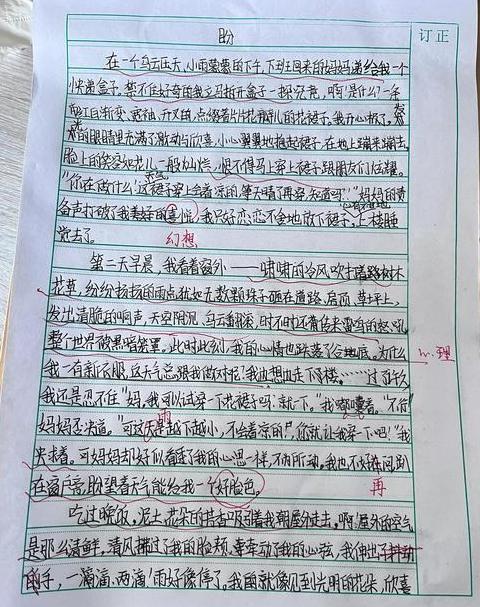 盼
订正
在一个乌云压天、小雨蒙蒙的下午,下班回来的妈妈递给我一个
快递盒子,禁不住好奇的我立马拆开盒子一探究竟,啊!是什么?一条
粉红白渐变、露袖、开叉的、点缀着片片花瓣儿的花裙子,我开心极了,
的眼睛里充满了激动与欣喜,小心翼翼地抱起裙子,在地上蹦来蹦去,
脸上的笑容如花儿一般灿烂,恨不得马上穿上裙子跟朋友们炫耀。
“你在做什么?这裙子穿上会着凉的,等天晴了再穿,知道吗?”妈妈的责
备声打破了我美好的喜悦,我只好恋恋不舍地放下裙子,上楼睡
幻想
觉去了。
第二天早晨,我看着窗外——啸啸的冷风吹打着路树木
花草,纷纷扬扬的雨点犹如无数颗珠子砸在道路、房顶、草坪上,
发出清脆的响声,天空阴沉,乌云翻滚,时不时还有传来雷鸣的怒吼
整个世界被黑暗笼罩。此时此刻,我的心情也跌落了谷底。为什么
理
我一有新衣服,这天气总跟我做对呢?我也想出走下楼……过了许久
我还是忍不住“妈,我可以试穿一下花裙子吗?就一下。”我嘟囔着。“不行”
妈妈否决道。“可这雨是越下越小,不会着凉的,你就让我穿一下吧!”我
央求着。可妈妈却好似看透了我的心思一样,不为所动,我也不好在问,趴
再
在窗户旁,盼望着天气能给我一个好脸色。
吃过晚饭,泥土花朵的芬香吸引着我朝屋外走去,啊!屋外的空气
是那么清鲜,清风拂过了我的脸颊,牵动了我的心弦,我伸出了
手,一滴滴、两滴,雨好像停了。我的就像见到光明的花朵,欣喜